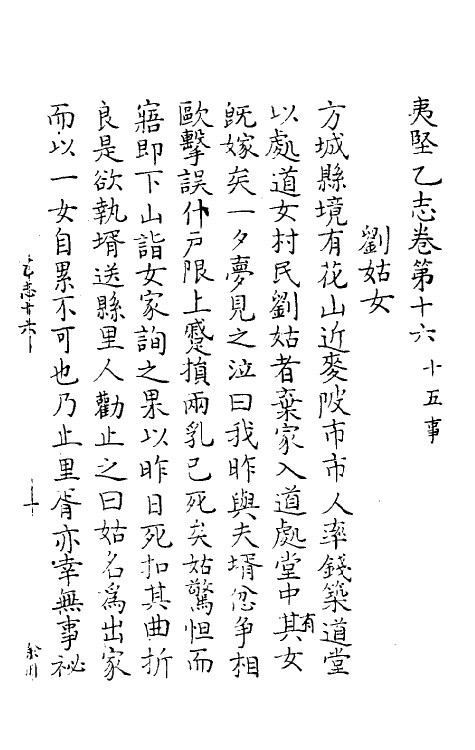 夷堅乙志卷第十六 十五事
劉姑女
方城縣境有花山近麥陂市市人率錢築道堂
以處道女村民劉姑者棄家入道處堂中其有女
旣嫁矣一夕夢見之泣曰我昨與夫壻忿争相
歐擊誤仆戸限上蹙損兩乳已死矣姑驚怛而
寤即下山詣女家詢之果以昨日死扣其曲折
良是欲執壻送縣里人勸止之曰姑名爲出家
而以一女自累不可也乃止里胥亦幸無事祕